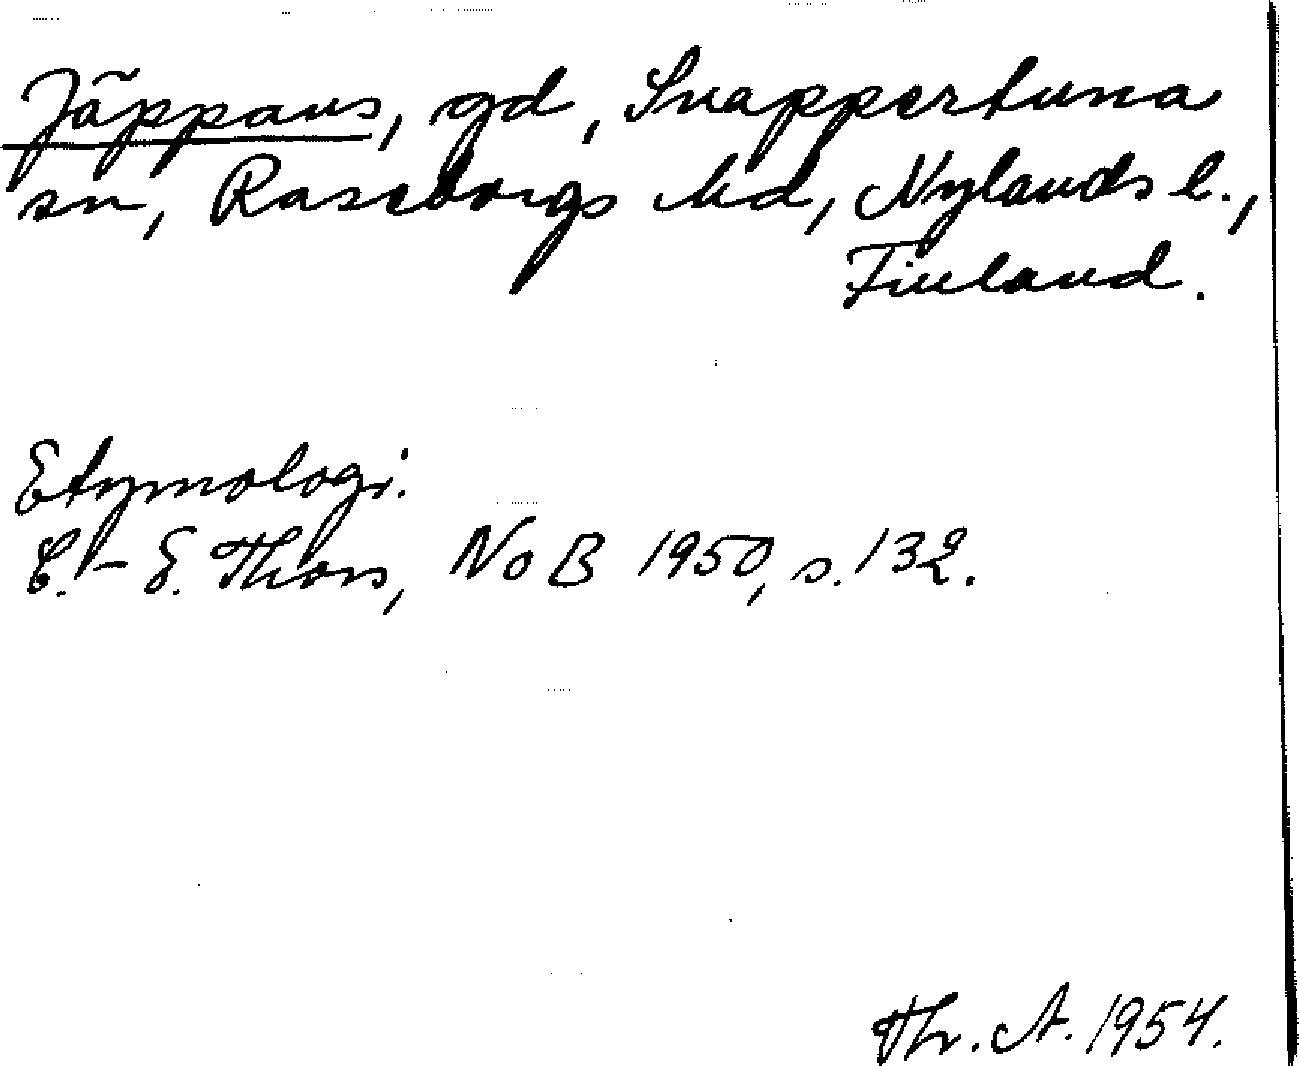 Jäppans, gd, Snappertuna
sn, Raseborgs hd, Nylands l.,
Finland.
Etymologi:
C.-E. Thors, NoB 1950, s. 132.
Thr. A. 1954.